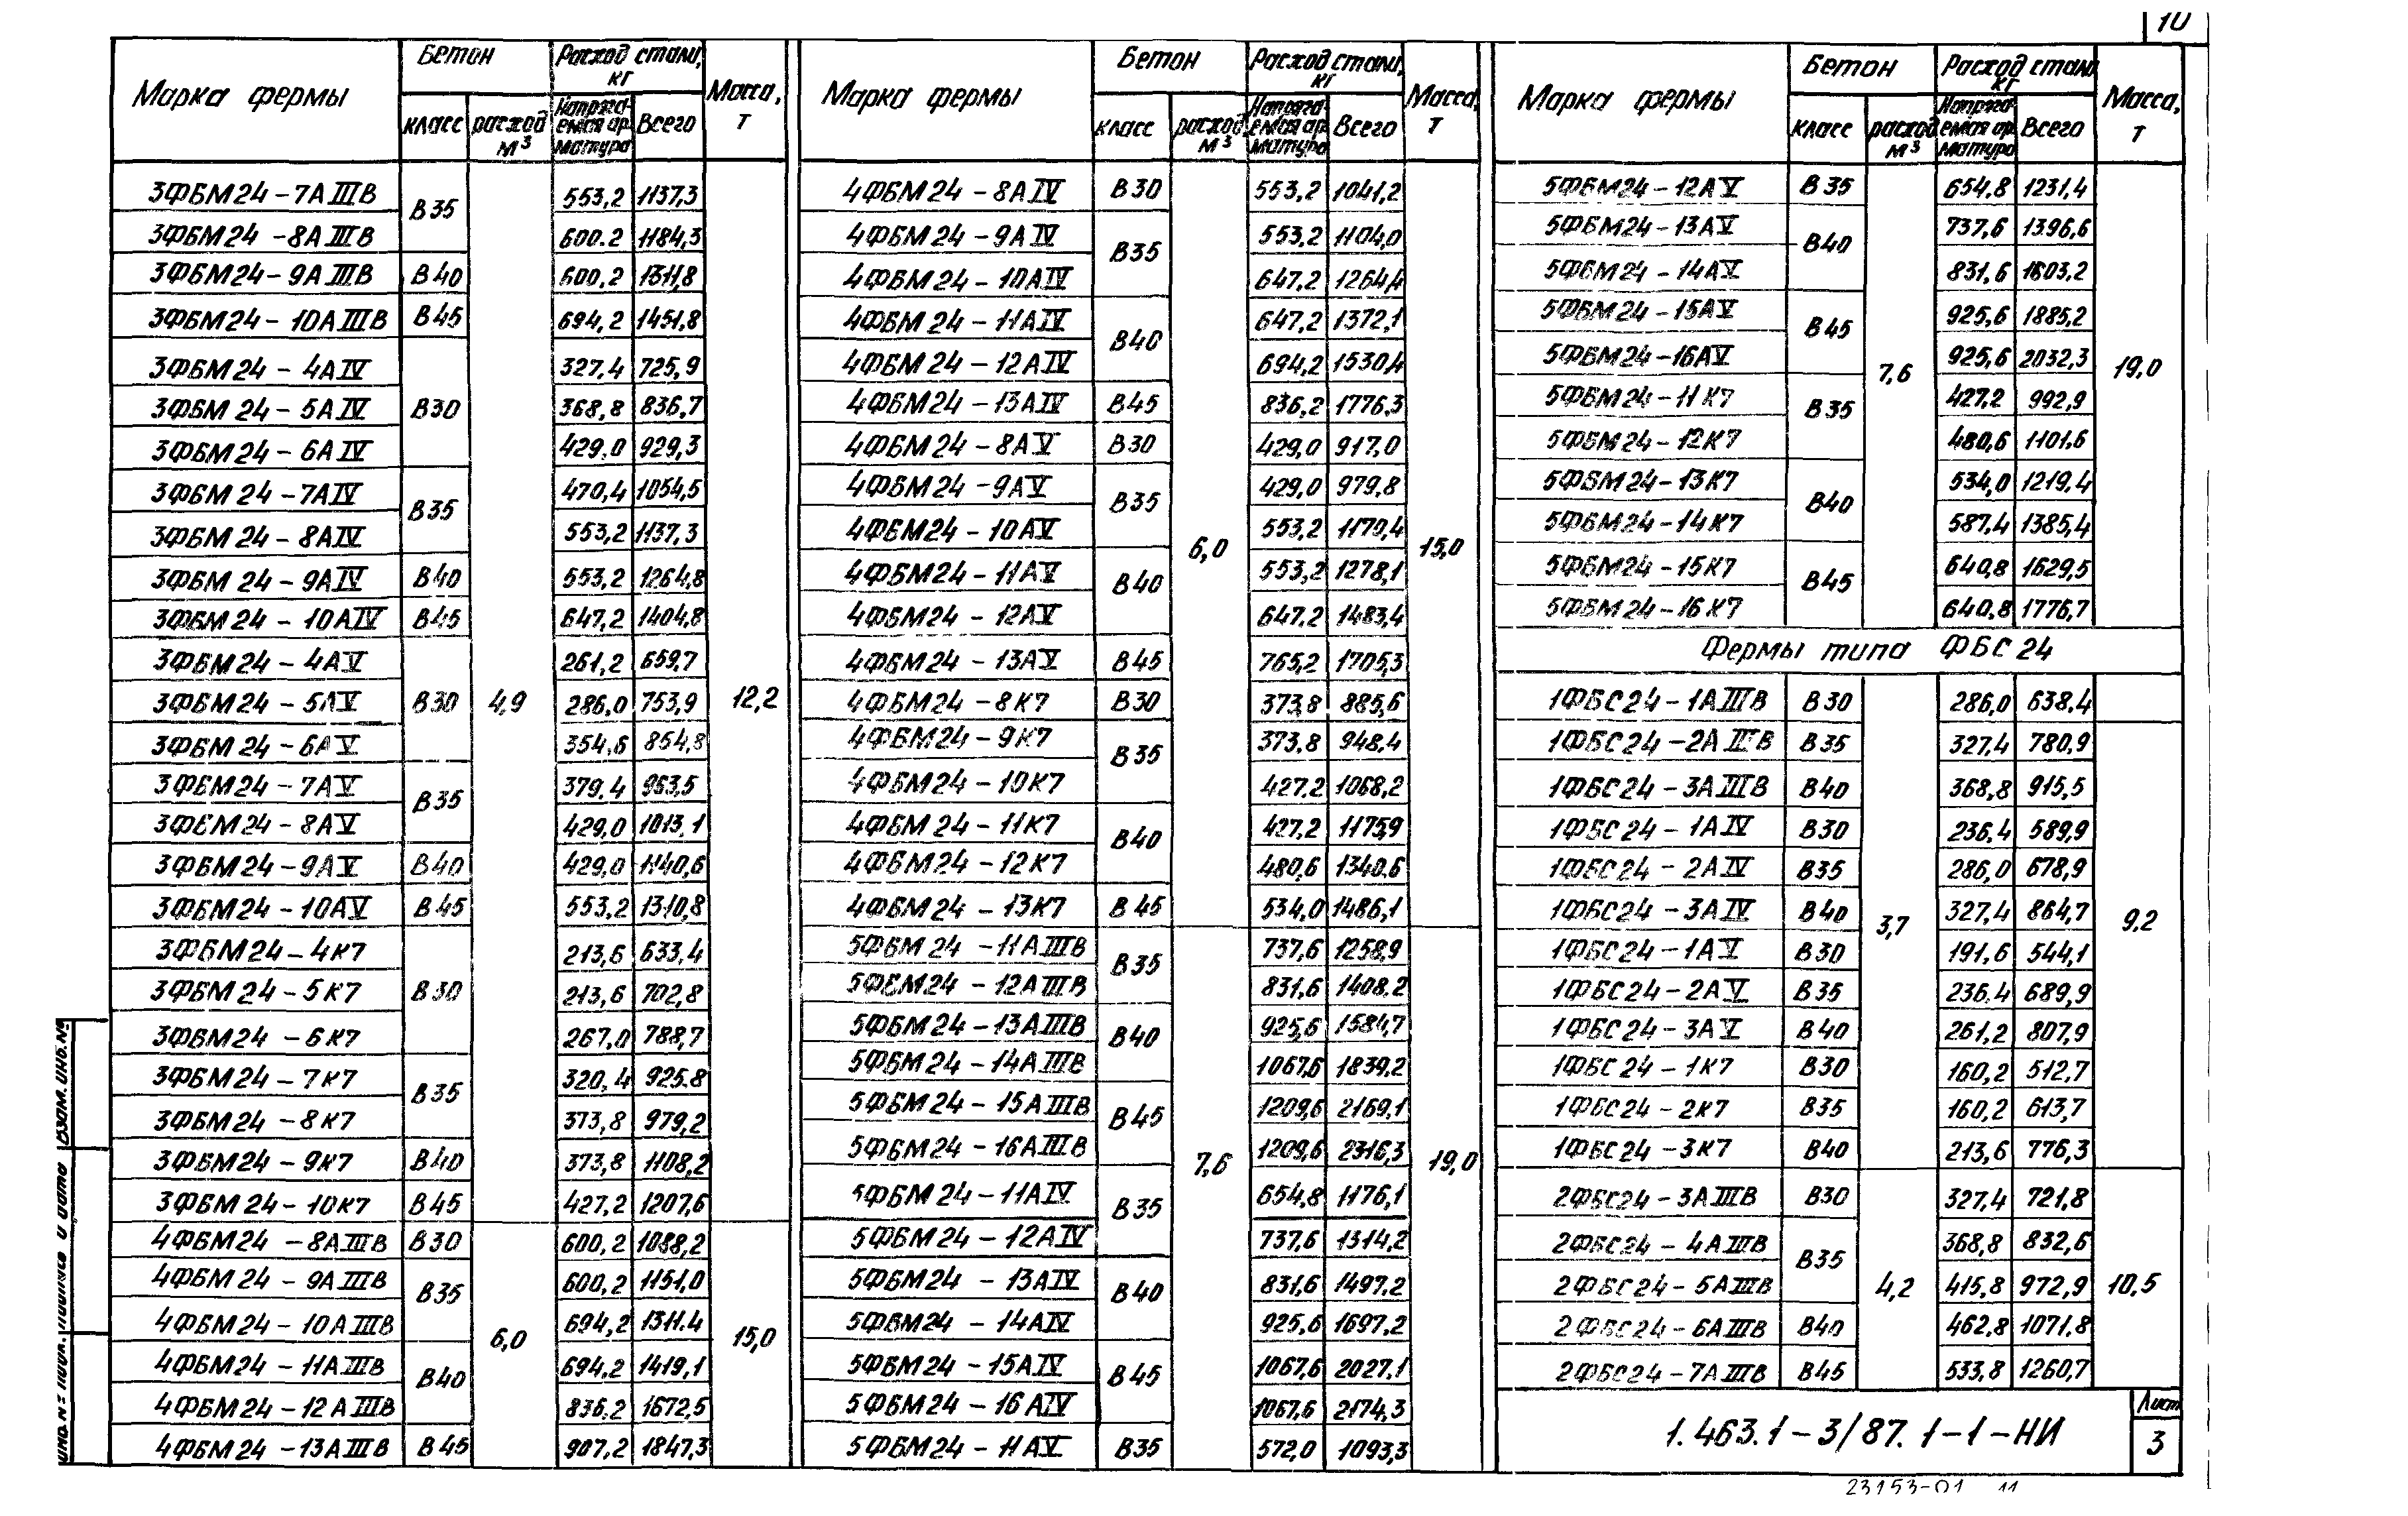 10
Марка фермы Бетон Расход стали, кг Масса, т
класс расход м³ Напрягаемая арматура Всего
3ФБМ24-7АIIIВ В35 4,9 553,2 1137,3 12,2
3ФБМ24-8АIIIВ 600.2 1184,3
3ФБМ24-9АIIIВ В40 600,2 1311,8
3ФБМ24-10АIIIВ В45 694,2 1451,8
3ФБМ24-4АIV В30 327,4 725,9
3ФБМ24-5АIV 368,8 836,7
3ФБМ24-6АIV 429,0 929,3
3ФБМ24-7АIV В35 470,4 1054,5
3ФБМ24-8АIV 553,2 1137,3
3ФБМ24-9АIV В40 553,2 1264,8
3ФБМ24-10АIV В45 647,2 1404,8
3ФБМ24-4АV В30 261,2 659,7
3ФБМ24-5АV 286,0 753,9
3ФБМ24-6АV 354,6 854,8
3ФБМ24-7АV В35 379,4 963,5
3ФБМ24-8АV 429,0 1013,1
3ФБМ24-9АV В40 429,0 1140,6
3ФБМ24-10АV В45 553,2 1310,8
3ФБМ24-4К7 В30 213,6 633,4
3ФБМ24-5К7 213,6 702,8
3ФБМ24-6К7 267,0 788,7
3ФБМ24-7К7 В35 320,4 925,8
3ФБМ24-8К7 373,8 979,2
3ФБМ24-9К7 В40 373,8 1108,2
3ФБМ24-10К7 В45 427,2 1207,6
4ФБМ24-8АIIIВ В30 6,0 600,2 1088,2 15,0
4ФБМ24-9АIIIВ В35 600,2 1151,0
4ФБМ24-10АIIIВ 694,2 1311.4
4ФБМ24-11АIIIВ В40 694,2 1419,1
4ФБМ24-12АIIIВ 836,2 1672,5
4ФБМ24-13АIIIВ В45 907,2 1847,3
Марка фермы Бетон Расход стали, кг Масса, т
класс расход м³ Напрягаемая арматура Всего
4ФБМ24-8АIV В30 6,0 553,2 1041,2 15,0
4ФБМ24-9АIV В35 553,2 1104,0
4ФБМ24-10АIV 647,2 1264,4
4ФБМ24-11АIV В40 647,2 1372,1
4ФБМ24-12АIV 694,2 1530,4
4ФБМ24-13АIV В45 836,2 1776,3
4ФБМ24-8АV В30 429,0 917,0
4ФБМ24-9АV В35 429,0 979,8
4ФБМ24-10АV 553,2 1170,4
4ФБМ24-11АV В40 553,2 1278,1
4ФБМ24-12АV 647,2 1483,4
4ФБМ24-13АV В45 765,2 1705,3
4ФБМ24-8К7 В30 373,8 885,6
4ФБМ24-9К7 В35 373,8 948,4
4ФБМ24-10К7 427,2 1068,2
4ФБМ24-11К7 В40 427,2 1175,9
4ФБМ24-12К7 480,6 1340,6
4ФБМ24-13К7 В45 534,0 1486,1
5ФБМ24-11АIIIВ В35 7,6 737,6 1258,9 19,0
5ФБМ24-12АIIIВ 831,6 1408,2
5ФБМ24-13АIIIВ В40 925,6 1584,7
5ФБМ24-14АIIIВ 1067,6 1839,2
5ФБМ24-15АIIIВ В45 1209,6 2169,1
5ФБМ24-16АIIIВ 1209,6 2316,3
5ФБМ24-11АIV В35 654,8 1176,1
5ФБМ24-12АIV 737,6 1314,2
5ФБМ24-13АIV В40 831,6 1497,2
5ФБМ24-14АIV 925,6 1697,2
5ФБМ24-15АIV В45 1067,6 2027,1
5ФБМ24-16АIV 1067,6 2174,3
5ФБМ24-11АV В35 572,0 1093,3
Марка фермы Бетон Расход стали кг Масса, т
класс расход м³ Напрягаемая арматура Всего
5ФБМ24-12АV В35 7,6 654,8 1231,4 19,0
5ФБМ24-13АV В40 737,6 1396,6
5ФБМ24-14АV 831,6 1603,2
5ФБМ24-15АV В45 925,6 1885,2
5ФБМ24-16АV 925,6 2032,3
5ФБМ24-11К7 В35 427,2 992,9
5ФБМ24-12К7 480,6 1101,6
5ФБМ24-13К7 В40 534,0 1219,4
5ФБМ24-14К7 587,4 1385,4
5ФБМ24-15К7 В45 640,8 1629,5
5ФБМ24-16К7 640,8 1776,7
Фермы типа ФБС24
1ФБС24-1АIIIВ В30 3,7 286,0 638,4 9,2
1ФБС24-2АIIIВ В35 327,4 780,9
1ФБС24-3АIIIВ В40 368,8 915,5
1ФБС24-1АIV В30 236,4 589,9
1ФБС24-2АIV В35 286,0 678,9
1ФБС24-3АIV В40 327,4 864,7
1ФБС24-1АV В30 191,6 544,1
1ФБС24-2АV В35 236,4 689,9
1ФБС24-3АV В40 261,2 807,9
1ФБС24-1К7 В30 160,2 512,7
1ФБС24-2К7 В35 160,2 613,7
1ФБС24-3К7 В40 213,6 776,3
2ФБС24-3АIIIВ В30 4,2 327,4 721,8 10,5
2ФБС24-4АIIIВ В35 368,8 832,6
2ФБС24-5АIIIВ 415,8 972,9
2ФБС24-6АIIIВ В40 462,8 1071,8
2ФБС24-7АIIIВ В45 533,8 1260,7
1.463.1-3/87.1-1-НИ
Лист
3
23153-01 11
Взам. инв. №
Подпись и дата
Инв. № подл.